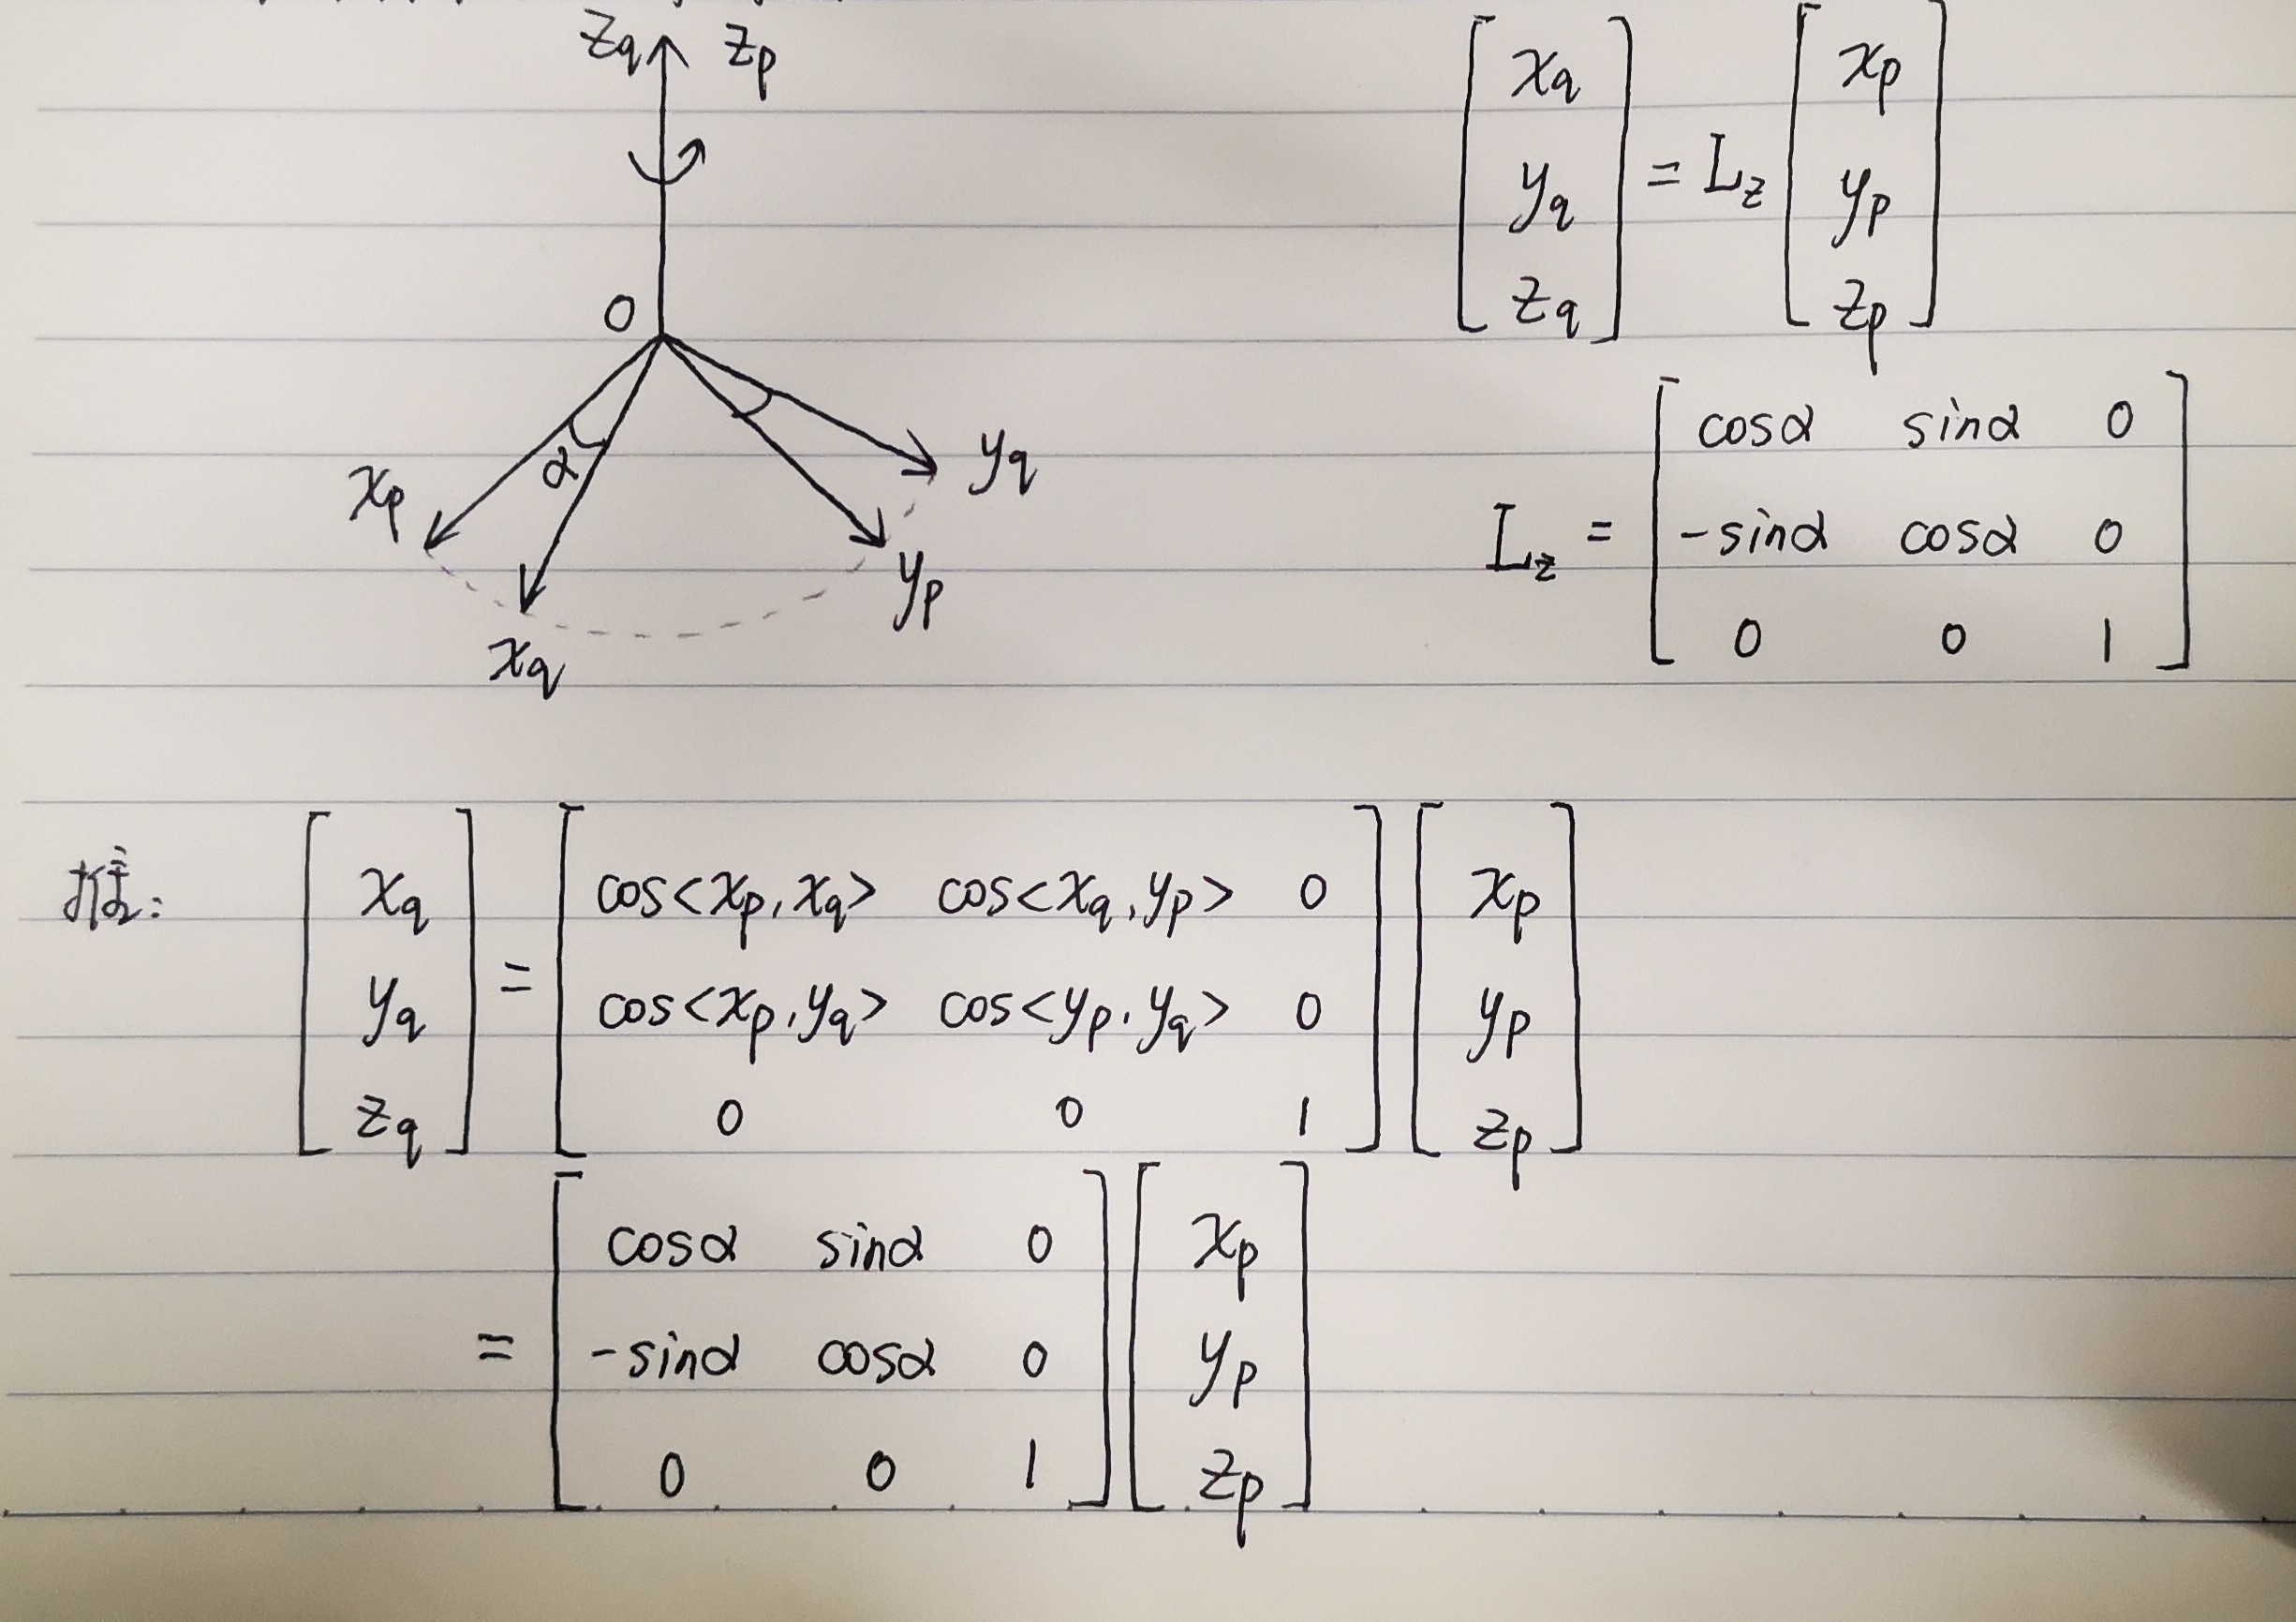 z_q z_p
O
α
x_p
x_q
y_p
y_q
[x_q y_q z_q] = L_z [x_p y_p z_p]
L_z = [cosα sinα 0
-sinα cosα 0
0 0 1]
推: [x_q y_q z_q] = [cos<x_p,x_q> cos<x_q,y_p> 0
cos<x_p,y_q> cos<y_p,y_q> 0
0 0 1] [x_p y_p z_p]
= [cosα sinα 0
-sinα cosα 0
0 0 1] [x_p y_p z_p]